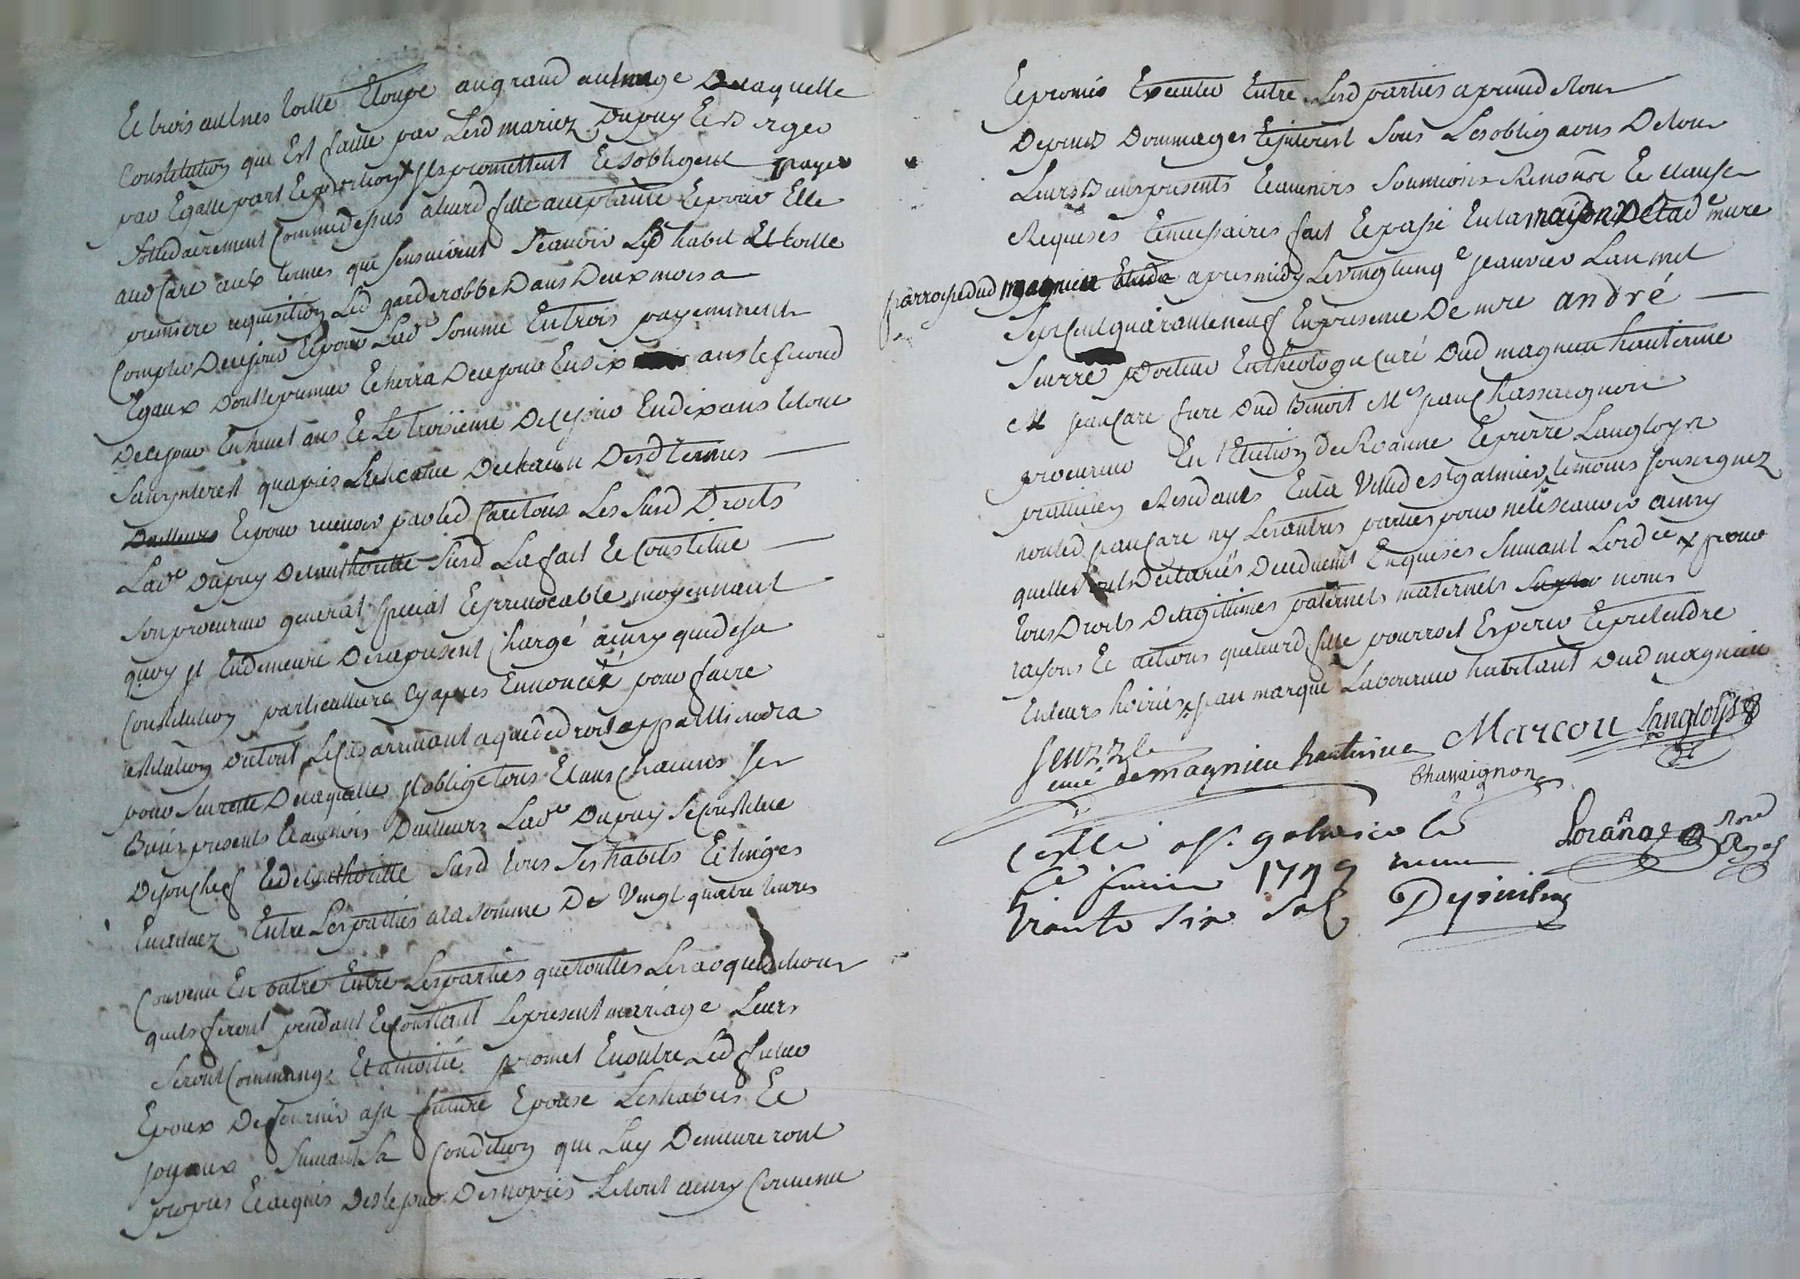 Et trois aulnes toille Etoupe au grand aulnage De laquelle
Constitution qui Est faitte par Lesd mariez Dupuy Et Berger
par Egalle part Et portion Ils promettent Et sobligent payer
sollidairement Comme dessus a leurd fille acceptante Et pour Elle
aud Care aux termes qui sensuivent Scauoir Led habit Et toille
premiere requisition Led garderobbe Dans Deux mois a
Compter De ce jour Et pour Lad Somme En trois payements
Egaux Dont le premier Echerra De ce jour En six ans le second
De ce jour En huit ans Et Le troisieme De ce jour En dix ans le tout
sans jnterest qu'apres L'Echeance De chacun Desd termes
Et pour receuoir par led Care tous Les susd Droits
Lade Dupuy De l'authoritte Susd La fait Et Constitue
Son procureur general special Et jrreuocable moyennant
quoy jl En demeure Des a present Charge ainsy que de sa
Constitution particulliere Cy apres Ennoncee pour faire
restitution Du tout Le Cas arriuant a qui de droit appartiendra
pour seurette De laquelle jl oblige tous Et uns Chacuns ses
Biens presents Et auenirs D'ailleurs Lade Dupuy se Constitue
De son Chef Et de lauthoritte Susd tous Ses habits Et linges
Eualuez Entre Les parties a la somme De Vingt quatre liures
Convenu En outre Entre Les parties que touttes Les acquisitions
quils feront pendant Et Constant Le present mariage Leurs
seront Communs Et a moitié promet En outre Led futur
Epoux De fournir a sa future Epouse Les habits Et
joyaux Suiuant sa Condition qui Luy Demeureront
propres Et acquis Des le jour Des nopces Le tout ainsy Conuenu
Et promis Executer Entre Lesd parties a peine de tous
Depens Dommages Et jnterest sous Les obligaons De tous
Leurs Biens presents Et auenirs Soumions Renonce Et clause
Requises Et necessaires fait Et passé En la maison De lad mure
parroisse dud magnieu apres midy Le vingt cinqe jeanvier Lan mil
Sept Cent quarante neuf En presence De mre andré
Seurre Docteur En theologie Curé Dud magnieu hauterive
Me jean Care frere Dud Benoit Me jean Chassaignon
procureur En l'Election de Roanne Et pierre Langloys
praticien Residants En la Ville de st galmier temoins soussignez
non led jean Care ny Les autres parties pour ne le scauoir ainsy
quelles ont Declarées Deuement Enquises suiuant Lordce x pour
tous Droits De legitimes paternels maternels noms
raisons Et actions que leurd fille pourroit Esperer Et pretendre
En leurs hoiries x jean marque Laboureur habitant Dud magnieu
Seurre
curé de magnieu hauterive Marcou Langloys
Chassaignon
Conllé a st galmier le
1749
trante six sols